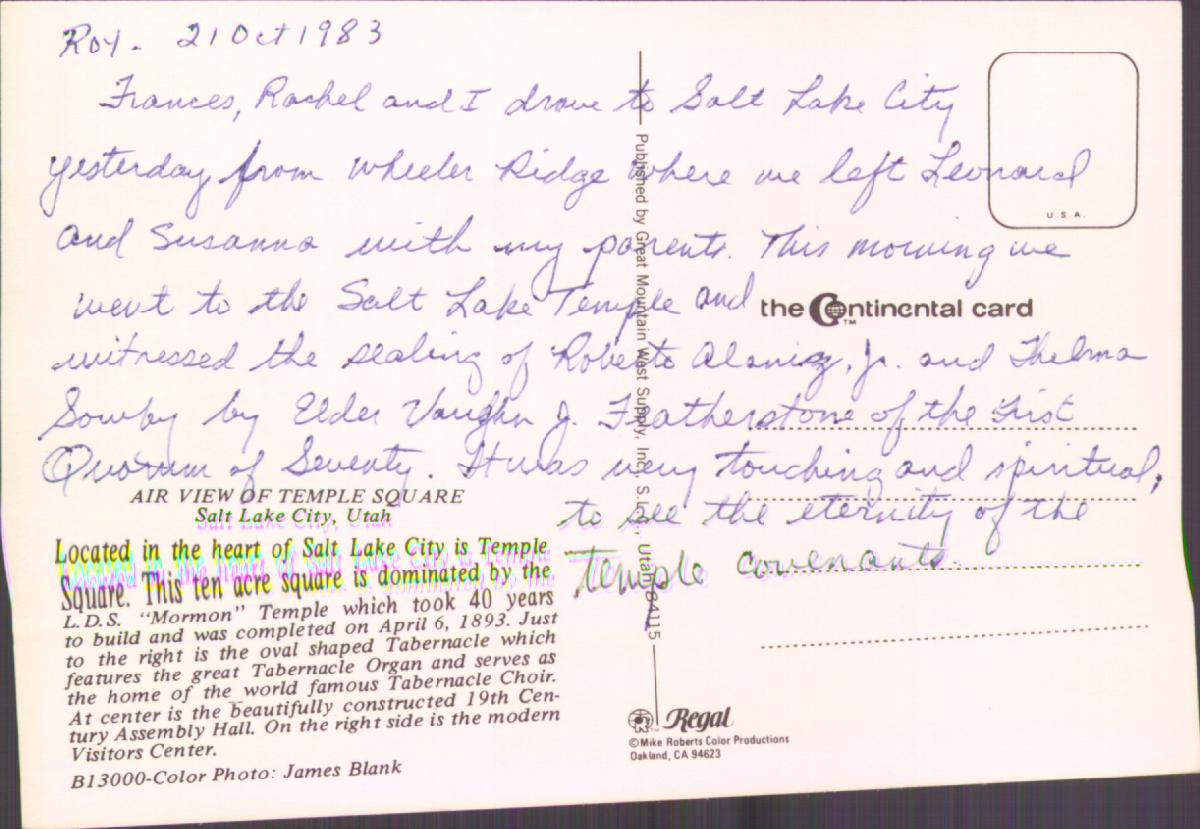 Roy. 21 Oct 1983
Frances, Rachel and I drove to Salt Lake City
yesterday from Wheeler Ridge where we left Leonard
and Susanna with my parents. This morning we
went to the Salt Lake Temple and
witnessed the sealing of Roberto Alaniz, Jr. and Thelma
Sowby by Elder Vaughn J. Featherstone of the First
Quorum of Seventy. It was very touching and spiritual,
to see the eternity of the
temple covenants.
U.S.A.
the Continental card
TM
Published by Great Mountain West Supply, Inc., S.L.C., Utah 84115
AIR VIEW OF TEMPLE SQUARE
Salt Lake City, Utah
Located in the heart of Salt Lake City is Temple
Square. This ten acre square is dominated by the
L.D.S. "Mormon" Temple which took 40 years
to build and was completed on April 6, 1893. Just
to the right is the oval shaped Tabernacle which
features the great Tabernacle Organ and serves as
the home of the world famous Tabernacle Choir.
At center is the beautifully constructed 19th Cen-
tury Assembly Hall. On the right side is the modern
Visitors Center.
B13000-Color Photo: James Blank
Regal
©Mike Roberts Color Productions
Oakland, CA 94623